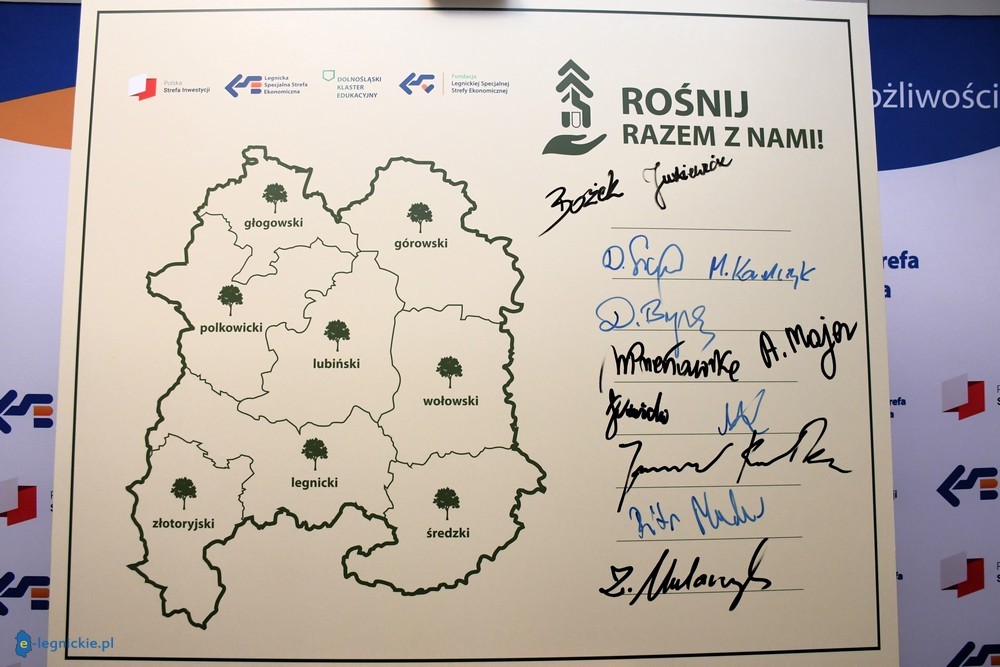 Polska
Strefa Inwestycji
Legnicka
Specjalna Strefa
Ekonomiczna
DOLNOŚLĄSKI
KLASTER
EDUKACYJNY
Fundacja
Legnickiej Specjalnej
Strefy Ekonomicznej
ROŚNIJ
RAZEM Z NAMI!
głogowski
górowski
polkowicki
lubiński
wołowski
legnicki
złotoryjski
średzki
Bożek
D.
M. Kowalczyk
D.
A. Major
Piotr
Z.
ożliwości
refa
e-legnickie.pl